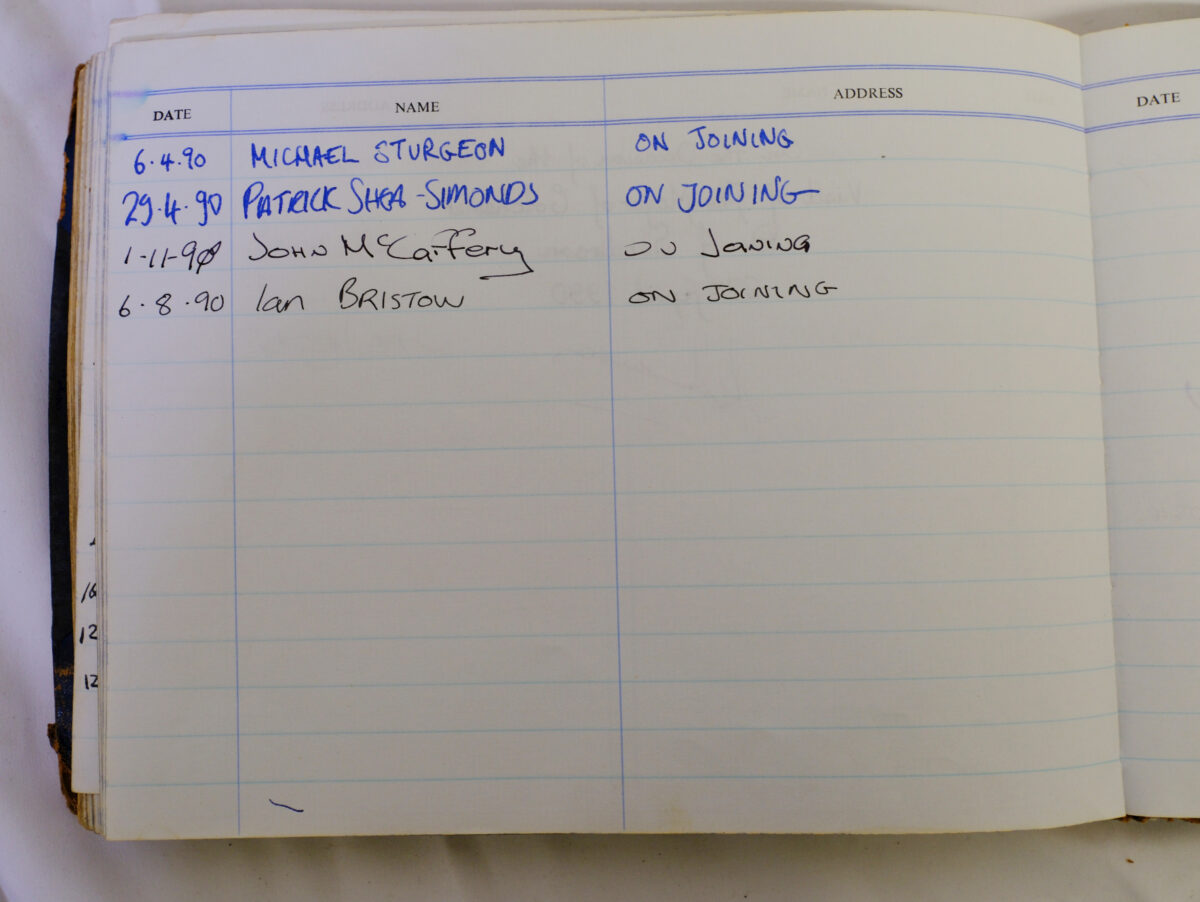 DATE NAME ADDRESS DATE
6.4.90 MICHAEL STURGEON ON JOINING
29.4.90 PATRICK SHEA-SIMONDS ON JOINING
1-11-90 JOHN McCaffery ON JOINING
6.8.90 Ian BRISTOW ON JOINING
16
12
12